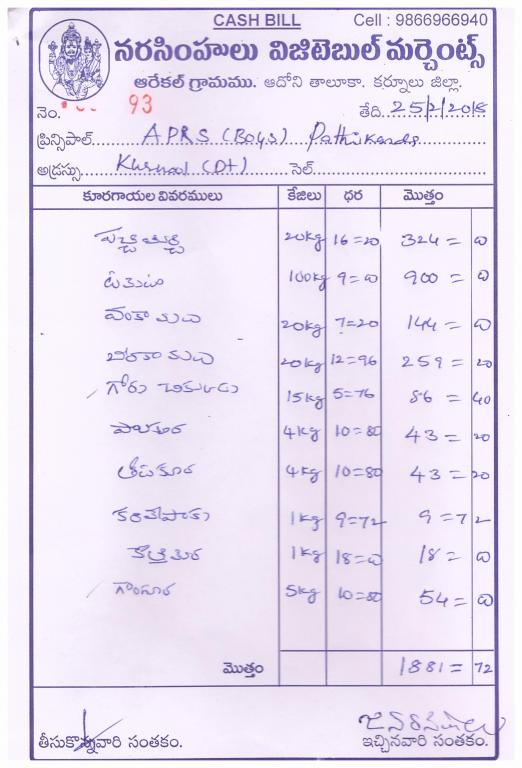 CASH BILL Cell : 9866966940
నరసింహులు విజిటెబుల్ మర్చెంట్స్
ఆరేకల్ గ్రామము. ఆదోని తాలూకా. కర్నూలు జిల్లా.
నెం. 93 తేది. 25/2/2018
ప్రిన్సిపాల్ APRS (Boys)
అడ్రస్సు Kurnool (Dt) సెల్
కూరగాయల వివరములు కేజీలు ధర మొత్తం
పచ్చిమిర్చి 20kg 16=20 324=0
టమోటా 100kg 9=0 900=0
వంకాయ 20kg 7=20 144=0
బీరకాయ 20kg 12=96 259=20
గోరు చికుడు 15kg 5=76 86=40
పాలకూర 4kg 10=80 43=20
4kg 10=80 43=20
కరివేపాకు 1kg 9=72 9=72
కొత్తిమీర 1kg 18=0 18=0
గోంగూర 5kg 10=80 54=0
మొత్తం 1881=72
తీసుకొన్నవారి సంతకం. ఇచ్చినవారి సంతకం.